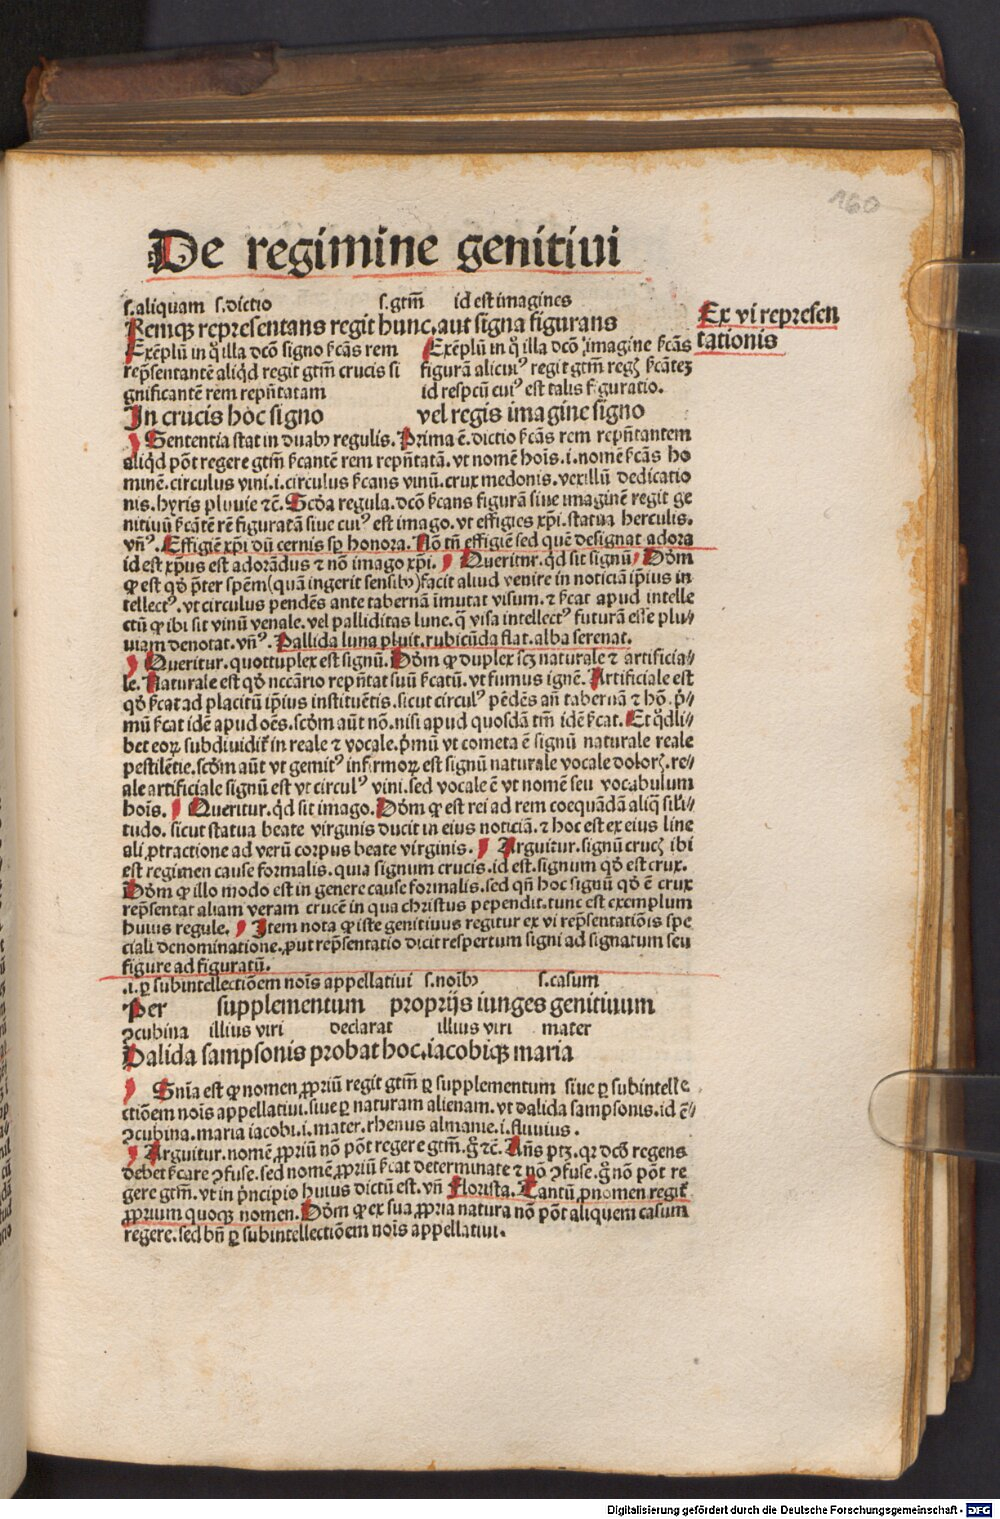 160
De regimine genitiui
s.aliquam s.dictio s.gtm̄ id est imagines
Remqꝫ representans regit hunc.aut signa figurans
Ex vi represen
tationis
Exẽplū in q̊ illa dcõ signo ſcãs rem
rep̃sentantẽ aliq̊d regit gtm̄ crucis si
gnificantẽ rem repñtatam
Exẽplū in q̊ illa dcõ .imagine ſcãs
figurã alicuiꝰ regit gtm̄ regꝭ ſcãteꝫ
id respcũ cuiꝰ est talis figuratio.
In crucis hoc signo vel regis imagine signo
Sententia stat in duabꝰ regulis. Prima ē. dictio ſcãs rem repñtantem
aliq̊d põt regere gtm̄ ſcantẽ rem repñtatã. vt nomẽ hoĩs. i. nomẽ ſcãs ho
minẽ. circulus vini. i. circulus ſcans vinū. crux medonis. vexillū dedicatio
nis. hyris pluuie ⁊c̃. Scđa regula. dcõ ſcans figurã siue imaginẽ regit ge
nitiuū ſcãtẽ rẽ figuratã siue cuiꝰ est imago. vt effigies xp̃i. statua herculis.
vñꝰ. Effigiẽ xp̃i dū cernis sp̱ honora. Nõ tñ effigiẽ sed quẽ designat adora
id est xp̃us est adorãdus ⁊ nõ imago xp̃i. Queritur. q̊d sit signū Dõm
ꝙ est qđ p̃ter spẽm (quã ingerit sensibꝰ) facit aliud venire in noticiã ip̃ius in
tellectꝰ. vt circulus pendẽs ante tabernã ĩmutat visum. ⁊ ſcat apud intelle
ctū ꝙ ibi sit vinū venale. vel palliditas lune. q̃ visa intellectꝰ futurã esse plu⸗
uiam denotat. vñꝰ. Pallida luna pluit. rubicũda flat. alba serenat.
Queritur. quottuplex est signū. Dõm ꝙ duplex scꝫ naturale ⁊ artificia⸗
le. Naturale est qđ nccãrio repñtat suū ſcatū. vt fumus ignẽ. Artificiale est
qđ ſcat ad placitū ip̃ius instituẽtis. sicut circulꝰ pẽdẽs añ tabernã ⁊ hõ. p̃⸗
mū ſcat idẽ apud oẽs. scđm aūt nõ. nisi apud quosdã tm̄ idẽ ſcat. Et q̊dli⸗
bet eoꝝ subdiuidit̃ in reale ⁊ vocale. p̃mū vt cometa ē signū naturale reale
pestilẽtie. scđm aūt vt gemitꝰ infirmoꝝ est signū naturale vocale doloꝝ. re⸗
ale artificiale signū est vt circulꝰ vini. sed vocale ē vt nomẽ seu vocabulum
hoĩs. Queritur. q̊d sit imago. Dõm ꝙ est rei ad rem coequãdã aliq̃ sil̃i⸗
tudo. sicut statua beate virginis ducit in eius noticiã. ⁊ hoc est ex eius line
ali ꝓtractione ad verū corpus beate virginis. Arguitur. signū crucꝭ ibi
est regimen cause formalis. quia signum crucis. id est. signum qđ est crux.
Dõm ꝙ illo modo est in genere cause formalis. sed qñ hoc signū qđ ē crux
rep̃sentat aliam veram crucẽ in qua christus pependit. tunc est exemplum
huius regule. Item nota ꝙ iste genitiuus regitur ex vi rep̃sentatiõis spe
ciali denominatione. ꝓut rep̃sentatio dicit respectum signi ad signatum seu
figure ad figuratū.
.i. ꝑ subintellectiõem noĩs appellatiui s.noĩbꝰ s.casum
Per supplementum proprijs iunges genitiuum
ꝯcubina illius viri declarat illius viri mater
Dalida sampsonis probat hoc.iacobiqꝫ maria
Snĩa est ꝙ nomen ꝓpriū regit gtm̄ ꝑ supplementum siue ꝑ subintelle
ctiõem noĩs appellatiui. siue ꝑ naturam alienam. vt dalida sampsonis. id ē⸗
ꝯcubina. maria iacobi. i. mater. rhenus almanie. i. fluuius.
Arguitur. nomẽ ꝓpriū nõ põt regere gtm̄. g̊ ⁊c̃. Añs ptꝫ. qꝛ dcõ regens
debet ſcare ꝯfuse. sed nomẽ ꝓpriū ſcat determinate ⁊ nõ ꝯfuse. g̊ nõ põt re
gere gtm̄. vt in p̃ncipio huius dictū est. vñ Florista. Tantū ꝓnomen regit̃
ꝓprium quoqꝫ nomen. Dõm ꝙ ex sua ꝓpria natura nõ põt aliquem casum
regere. sed bñ ꝑ subintellectiõem noĩs appellatiui.
Digitalisierung gefördert durch die Deutsche Forschungsgemeinschaft - DFG